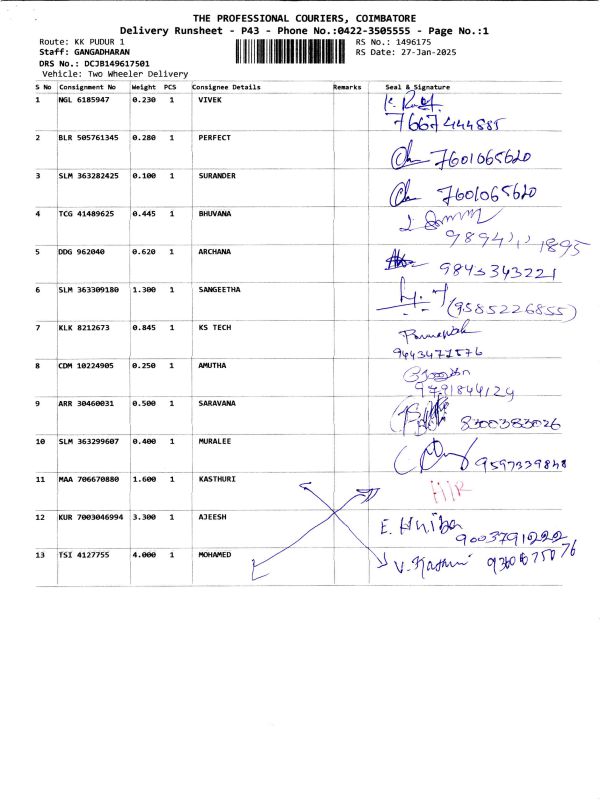 THE PROFESSIONAL COURIERS, COIMBATORE
Delivery Runsheet - P43 - Phone No.:0422-3505555 - Page No.:1
Route: KK PUDUR 1 RS No.: 1496175
Staff: GANGADHARAN RS Date: 27-Jan-2025
DRS No.: DCJB149617501
Vehicle: Two Wheeler Delivery
S No Consignment No Weight PCS Consignee Details Remarks Seal & Signature
1 NGL 6185947 0.230 1 VIVEK
7667444885
2 BLR 505761345 0.280 1 PERFECT 7601065620
3 SLM 363282425 0.100 1 SURANDER 7601065620
4 TCG 41489625 0.445 1 BHUVANA
5 DDG 960040 0.620 1 ARCHANA 9843343221
6 SLM 363309180 1.300 1 SANGEETHA (9585226855)
7 KLK 8212673 0.845 1 KS TECH
8 CDM 10224905 0.250 1 AMUTHA
9791844124
9 ARR 30460031 0.500 1 SARAVANA 8300383026
10 SLM 363299607 0.400 1 MURALEE 9597339848
11 MAA 706670880 1.600 1 KASTHURI
12 KUR 7003046994 3.300 1 AJEESH
9003791222
13 TSI 4127755 4.000 1 MOHAMED